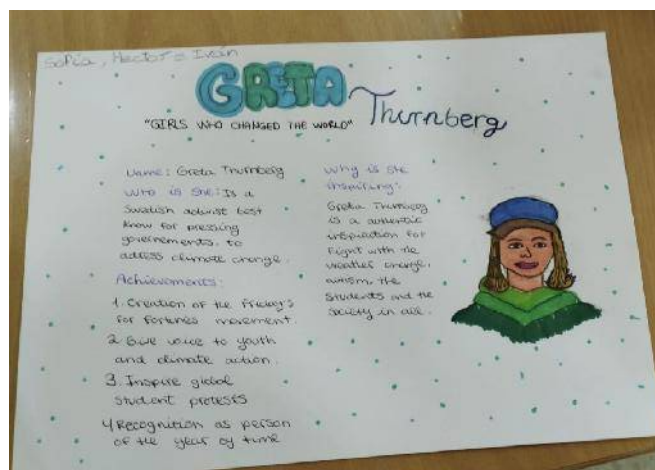 Sofia, Hector e Iván
GRETA
Thurnberg
"GIRLS WHO CHANGED THE WORLD"
Name: Greta Thurnberg
Who is she: Is a
Swedish activist best
know for pressing
governements. to
address climate change.
Achievements:
1. Creation of the Friday's
for Fortunes movement.
2. Give voice to youth
and climate action.
3. Inspire global
student protests
4 Recognition as person
of the year by time
Why is she
inspiring:
Greta Thurnberg
is a authentic
inspiration for
Fight with the
weather change,
autism, the
students and the
society in all.